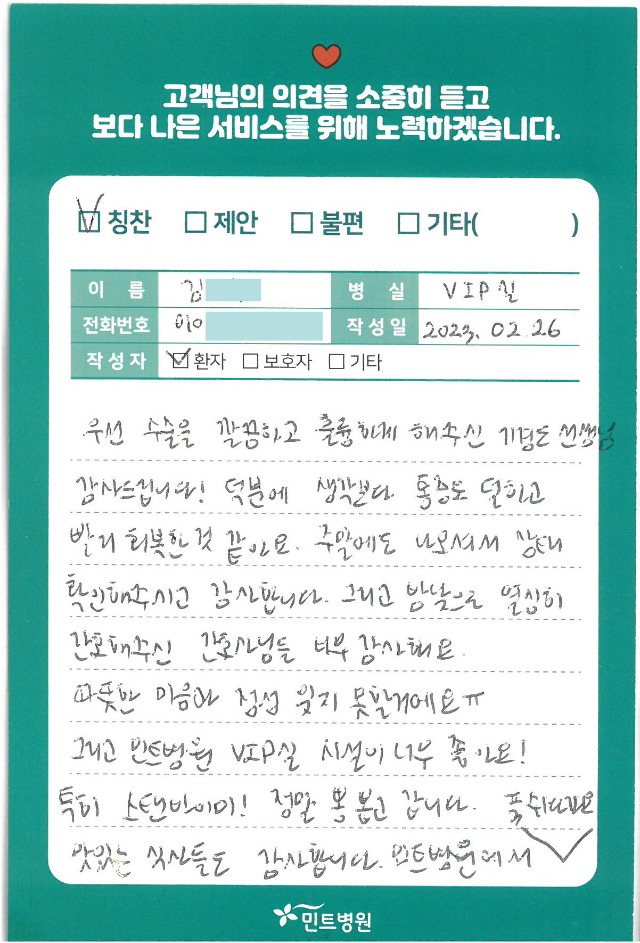 고객님의 의견을 소중히 듣고
보다 나은 서비스를 위해 노력하겠습니다.
칭찬 제안 불편 기타( )
이 름 김 병 실 VIP실
전화번호 010 작성일 2023. 02. 26
작성자 환자 보호자 기타
우선 수술을 깔끔하고 훌륭하게 해주신 기경도 선생님
감사드립니다! 덕분에 생각보다 통증도 덜하고
빨리 회복한 것 같아요. 주말에도 나오셔서 상태
확인해주시고 감사합니다. 그리고 밤낮으로 열심히
간호해주신 간호사님들 너무 감사해요.
따뜻한 마음과 정성 잊지 못할거에요ㅠ
그리고 민트병원 VIP실 시설이 너무 좋아요!
특히 스탠바이미! 정말 뽕뽑고 갑니다. 푹 쉬다가요
맛있는 식사들도 감사합니다. 민트병원에서
민트병원